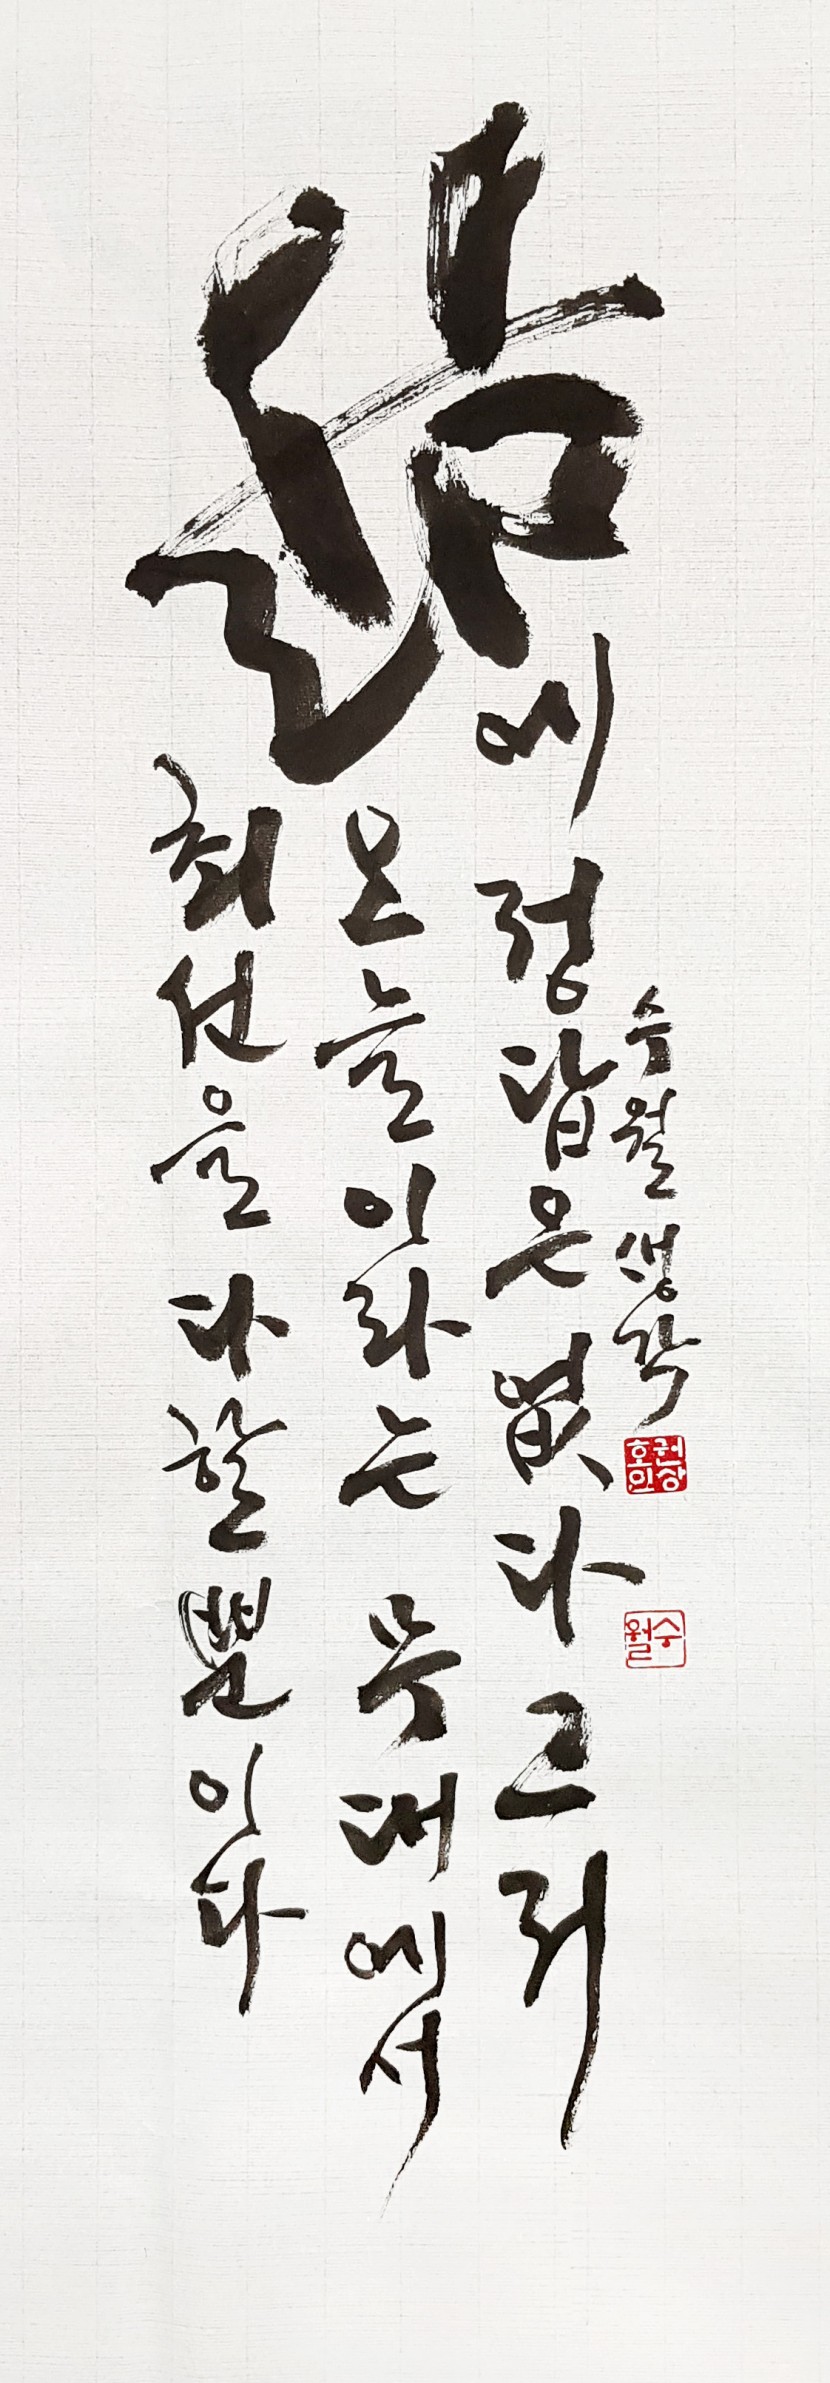 삶에 정답은 없다 그저
오늘이라는 무대에서
최선을 다할 뿐이다
수월 생각
권창호인
수월